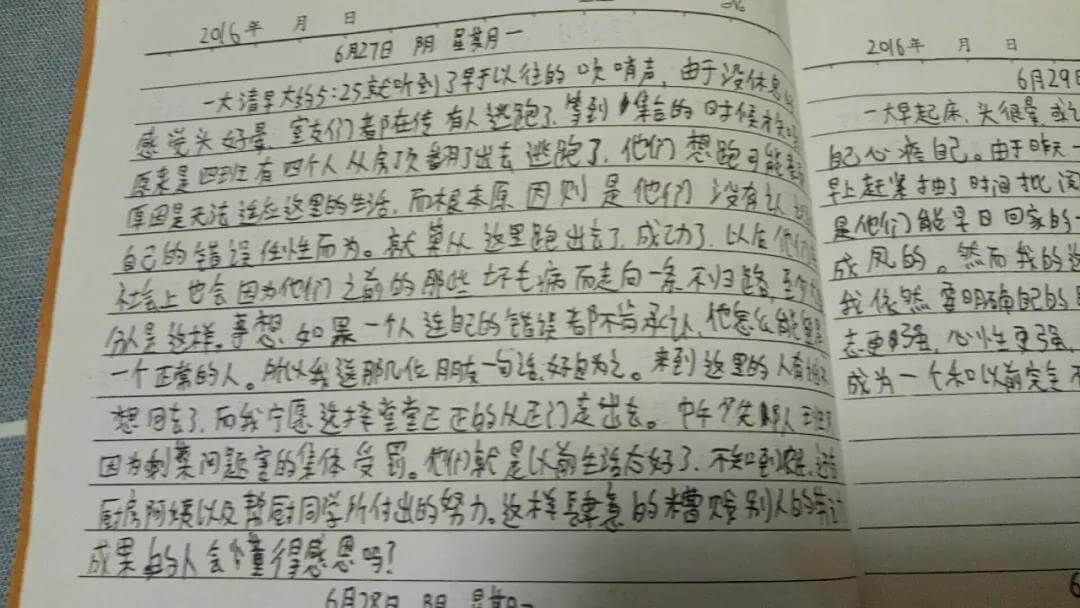 2016年 月 日
6月27日 阴 星期一
一大清早大约5:25就听到了早于以往的吹哨声,由于没休息
感觉头好晕,室友们都在传有人逃跑了,等到集合的时候才知
原来是四班有四个人从房顶翻了出去逃跑了,他们想跑可能
原因是无法适应这里的生活,而根本原因则是他们没有认
自己的错误任性而为。就算从这里跑出去了,成功了,以后他们
社会上也会因为他们之前的那些坏毛病而走向一条不归路,至少
分人是这样。想想如果一个人连自己的错误都不肯承认,他怎么能
一个正常的人。所以我送那几位朋友一句话,好自为之。来到这里的人有
想回去了,而我宁愿选择堂堂正正的从正门走出去。中午
因为剩菜问题室的集体受罚。他们就是以前生活太好了,不知
厨房阿姨以及帮厨同学所付出的努力。这样肆意的糟蹋别人的劳动
成果的人会懂得感恩吗?
6月28日 阴 星期
2016年 月 日
6月29日
一大早起床,头很晕,或
自己心疼自己。由于昨天
早上赶紧抽了时间批阅
是他们能早日回家的
成风的。然而我的
我依然要明确自己的
志更强,心性更强,
成为一个和以前完全不